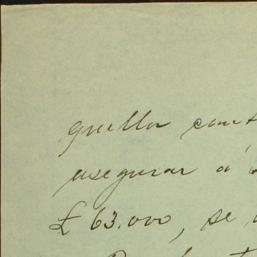 quella cant
asegurar a
£ 63.000, se